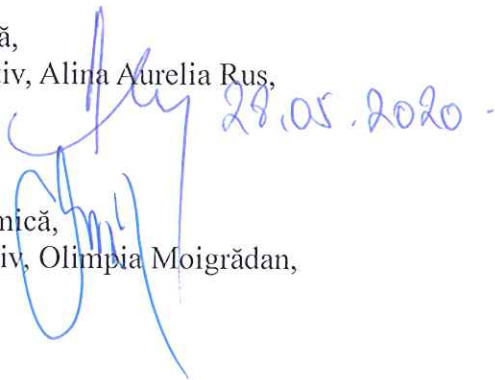 ă,
tiv, Alina Aurelia Rus,
28.05.2020 -
mică,
iv, Olimpia Moigrădan,